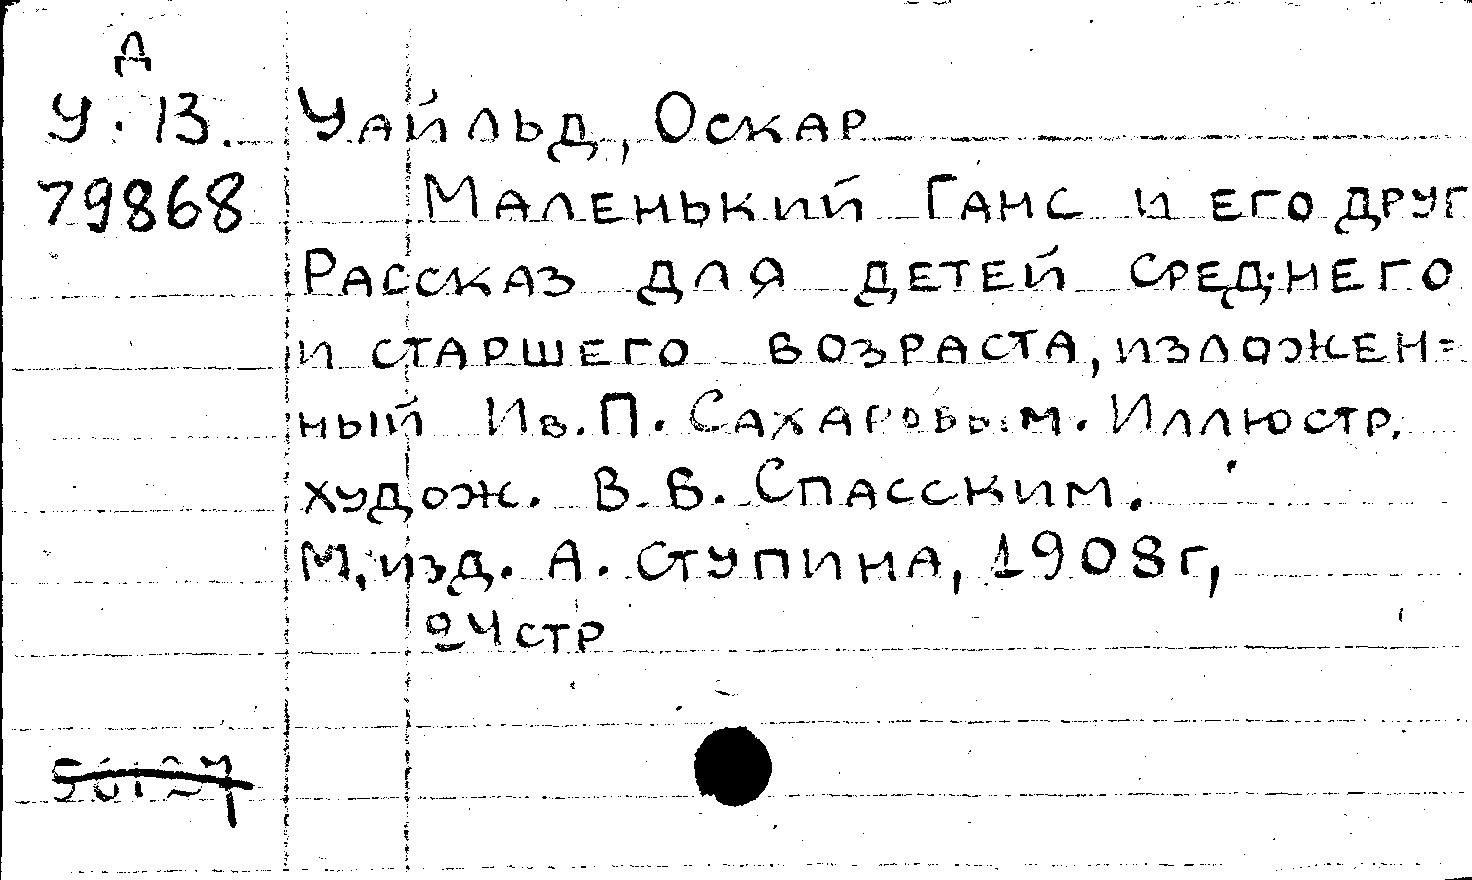 Д
У. 13. Уайльд, Оскар
79868 Маленький Ганс и его друг
Рассказ для детей среднего
и старшего возраста, изложен=
ный Ив. П. Сахаровым. Иллюстр.
худож. В. В. Спасским.
М, изд. А. Ступина, 1908г,
24 стр